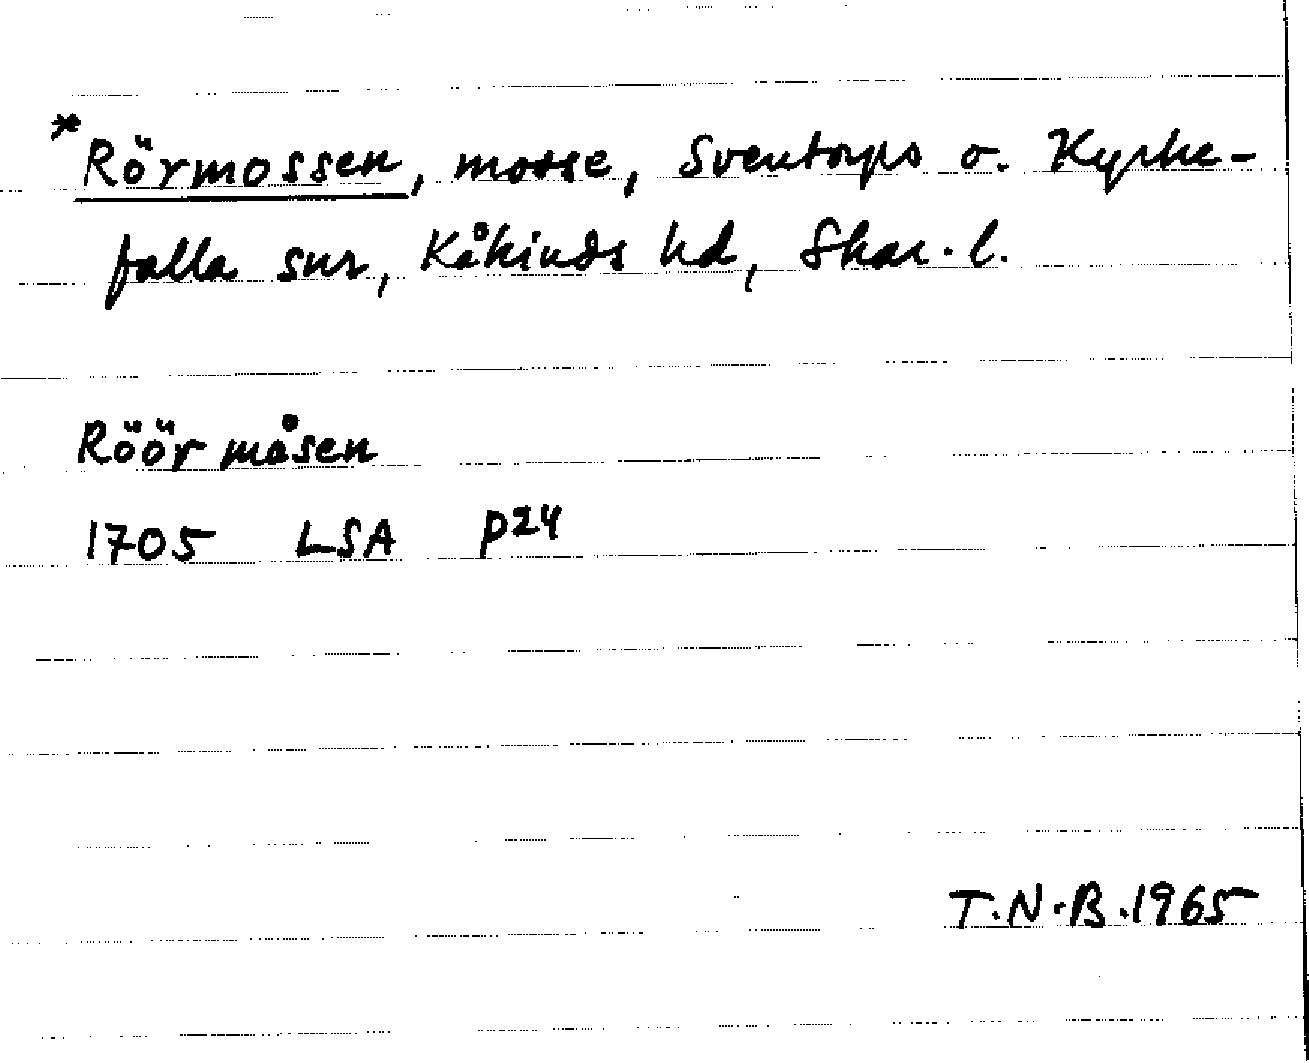 *Rörmossen, mosse, Sventorps o. Kyrke-
falla snr, Kåkinds hd, Skar. l.
Röör måsen
1705 LSA P24
T.N.B. 1965